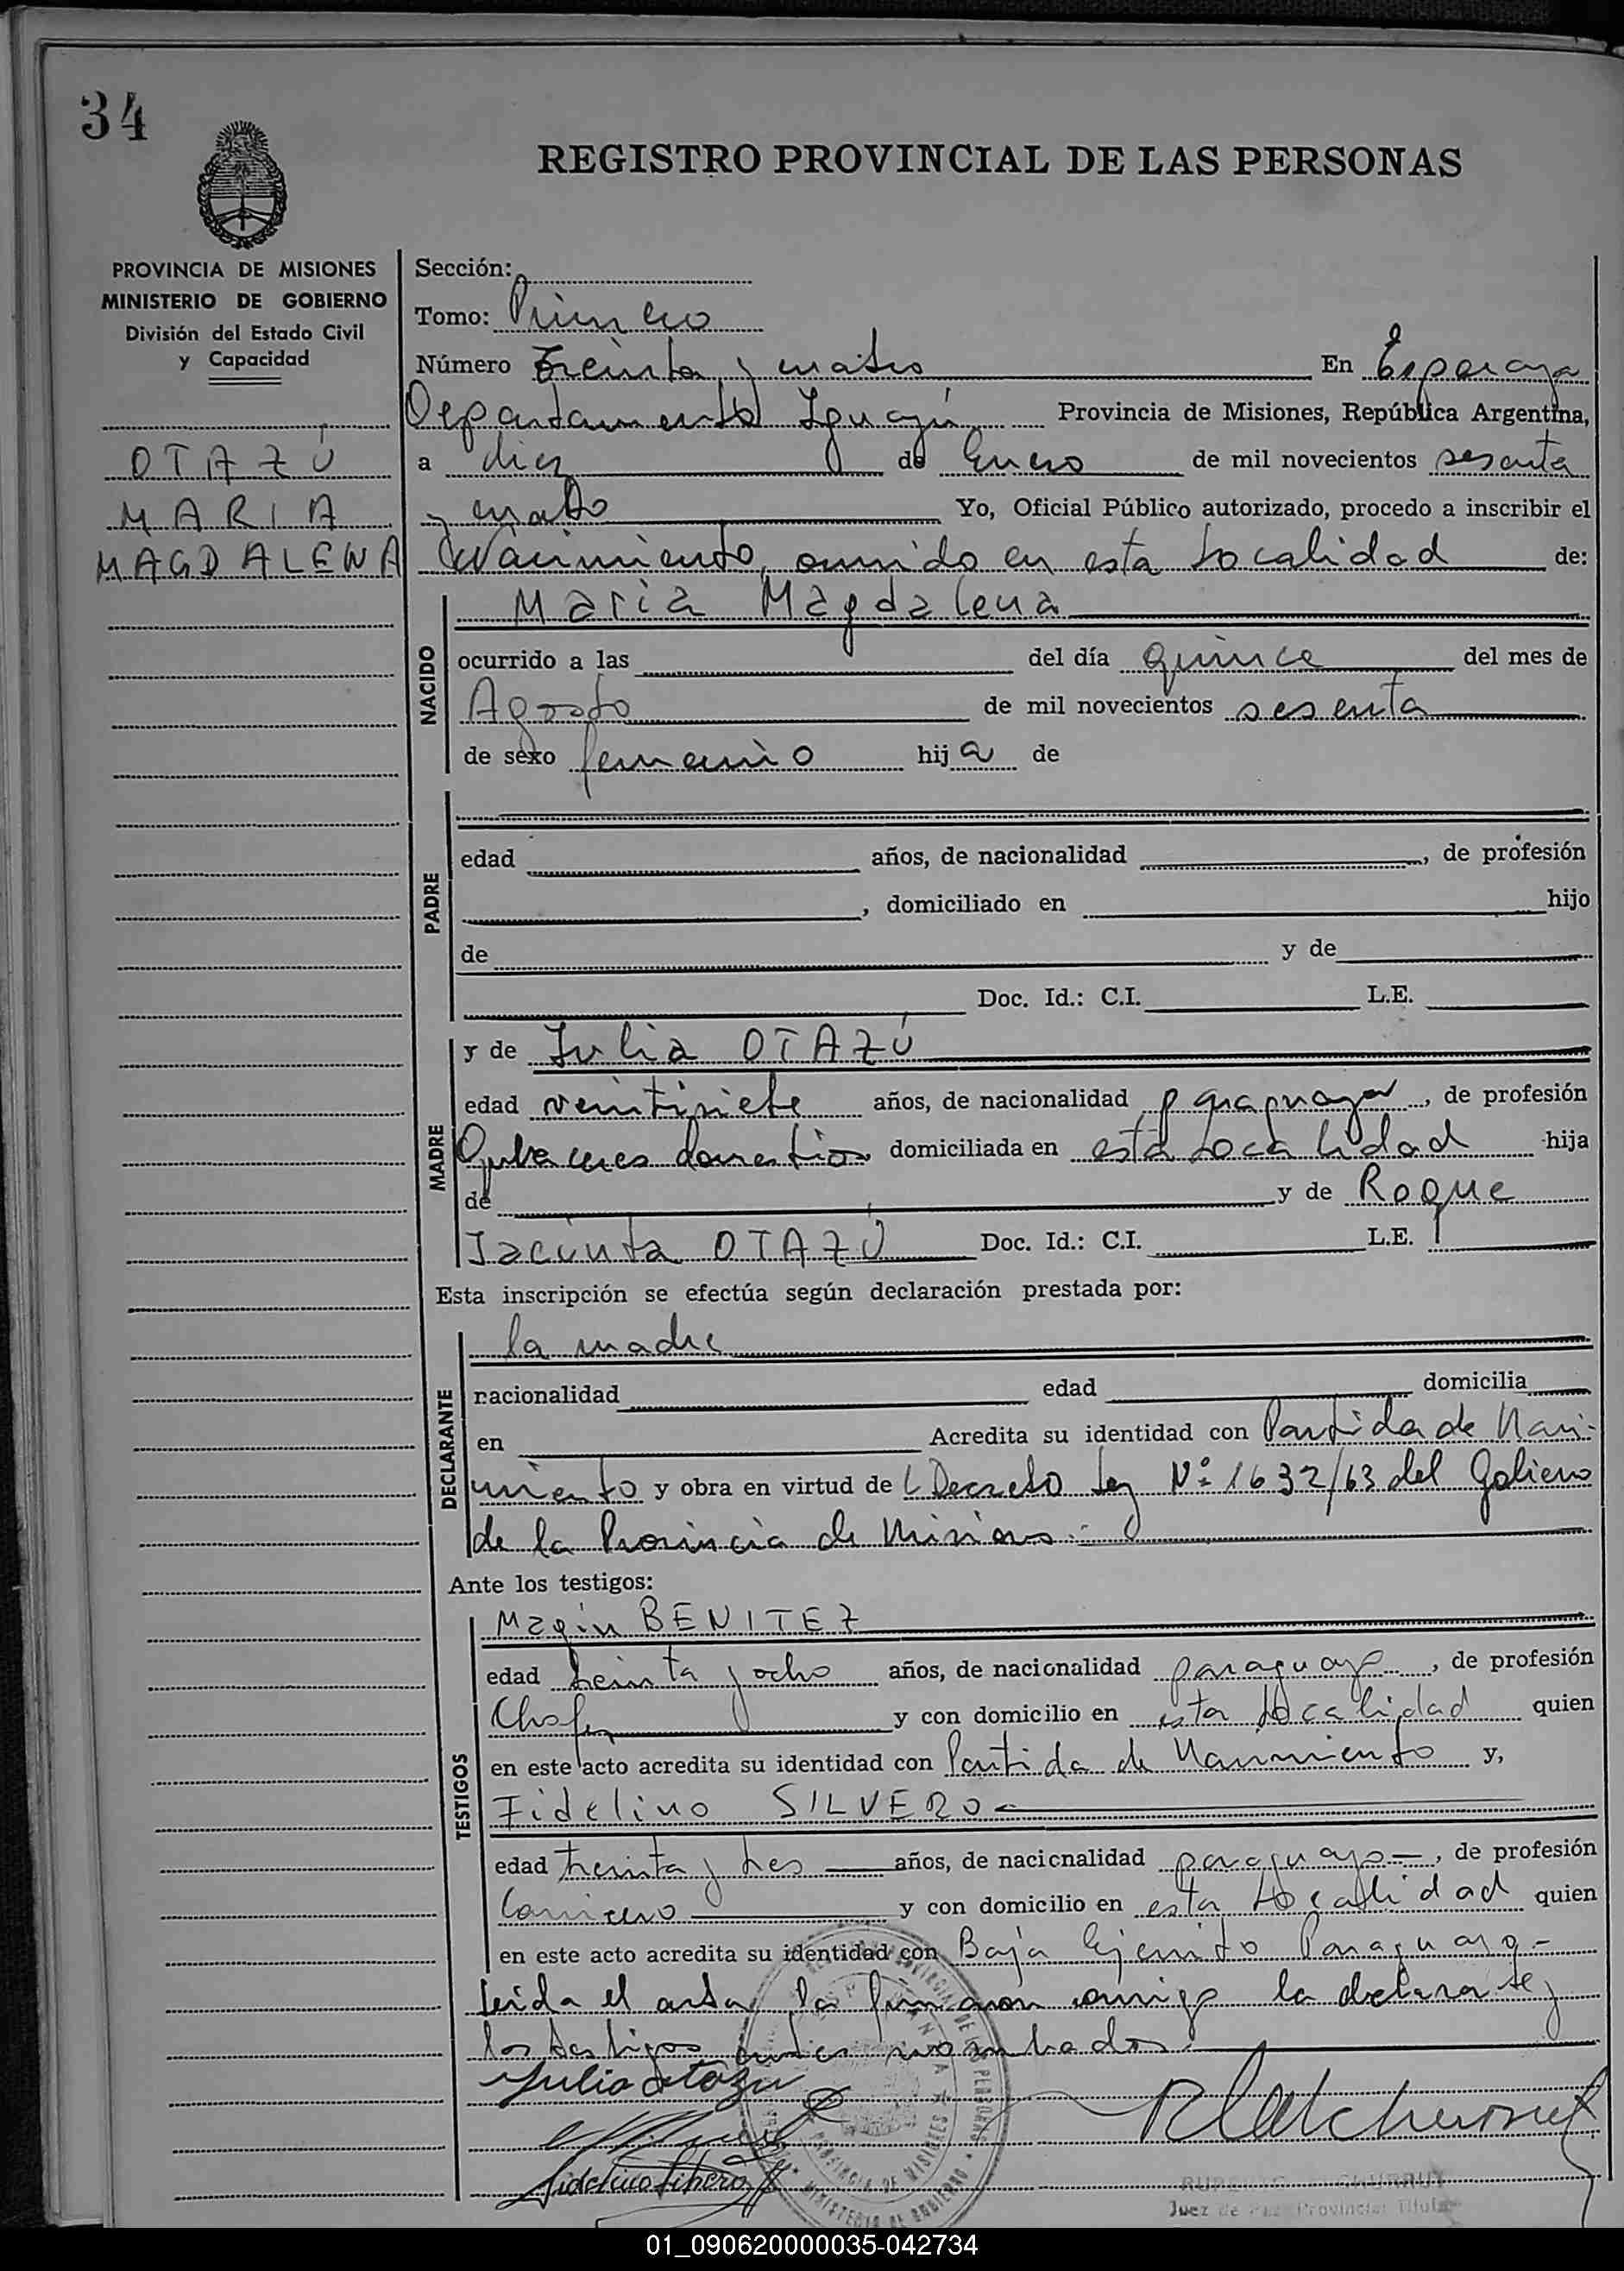 34
REGISTRO PROVINCIAL DE LAS PERSONAS
PROVINCIA DE MISIONES
MINISTERIO DE GOBIERNO
División del Estado Civil
y Capacidad
OTAZÚ
MARIA
MAGDALENA
Sección:
Tomo: Primero
Número Treinta y cuatro En Esperanza
Departamento Iguazú Provincia de Misiones, República Argentina,
a diez de Enero de mil novecientos sesenta
y cuatro Yo, Oficial Público autorizado, procedo a inscribir el
Nacimiento, ocurrido en esta Localidad de:
NACIDO
Maria Magdalena
ocurrido a las del día quince del mes de
Agosto de mil novecientos sesenta
de sexo femenino hija de
PADRE
edad años, de nacionalidad , de profesión
, domiciliado en hijo
de y de
Doc. Id.: C.I. L.E.
MADRE
y de Julia OTAZÚ
edad veintisiete años, de nacionalidad paraguaya, de profesión
Quehaceres domesticos domiciliada en esta Localidad hija
de y de Roque
Jacinta OTAZÚ Doc. Id.: C.I. L.E.
Esta inscripción se efectúa según declaración prestada por:
DECLARANTE
la madre
nacionalidad edad domicilia
en Acredita su identidad con Partida de Naci-
miento y obra en virtud de Decreto Ley Nº 1632/63 del Gobierno
de la Provincia de Misiones.-
Ante los testigos:
TESTIGOS
Magin BENITEZ
edad treinta y ocho años, de nacionalidad paraguayo, de profesión
Chofer y con domicilio en esta Localidad quien
en este acto acredita su identidad con Partida de Nacimiento y,
Fidelino SILVERO-
edad treinta y tres años, de nacionalidad paraguayo-, de profesión
Carnicero y con domicilio en esta Localidad quien
en este acto acredita su identidad con Baja Ejercito Paraguayo-
Leida el acta, la firmaron conmigo la declarante y
los testigos antes nombrados.
Julia Otazu
Fidelino Silvero
Juez de Paz Provincial Titular
PROVINCIA DE MISIONES
MINISTERIO DE GOBIERNO
01_090620000035-042734